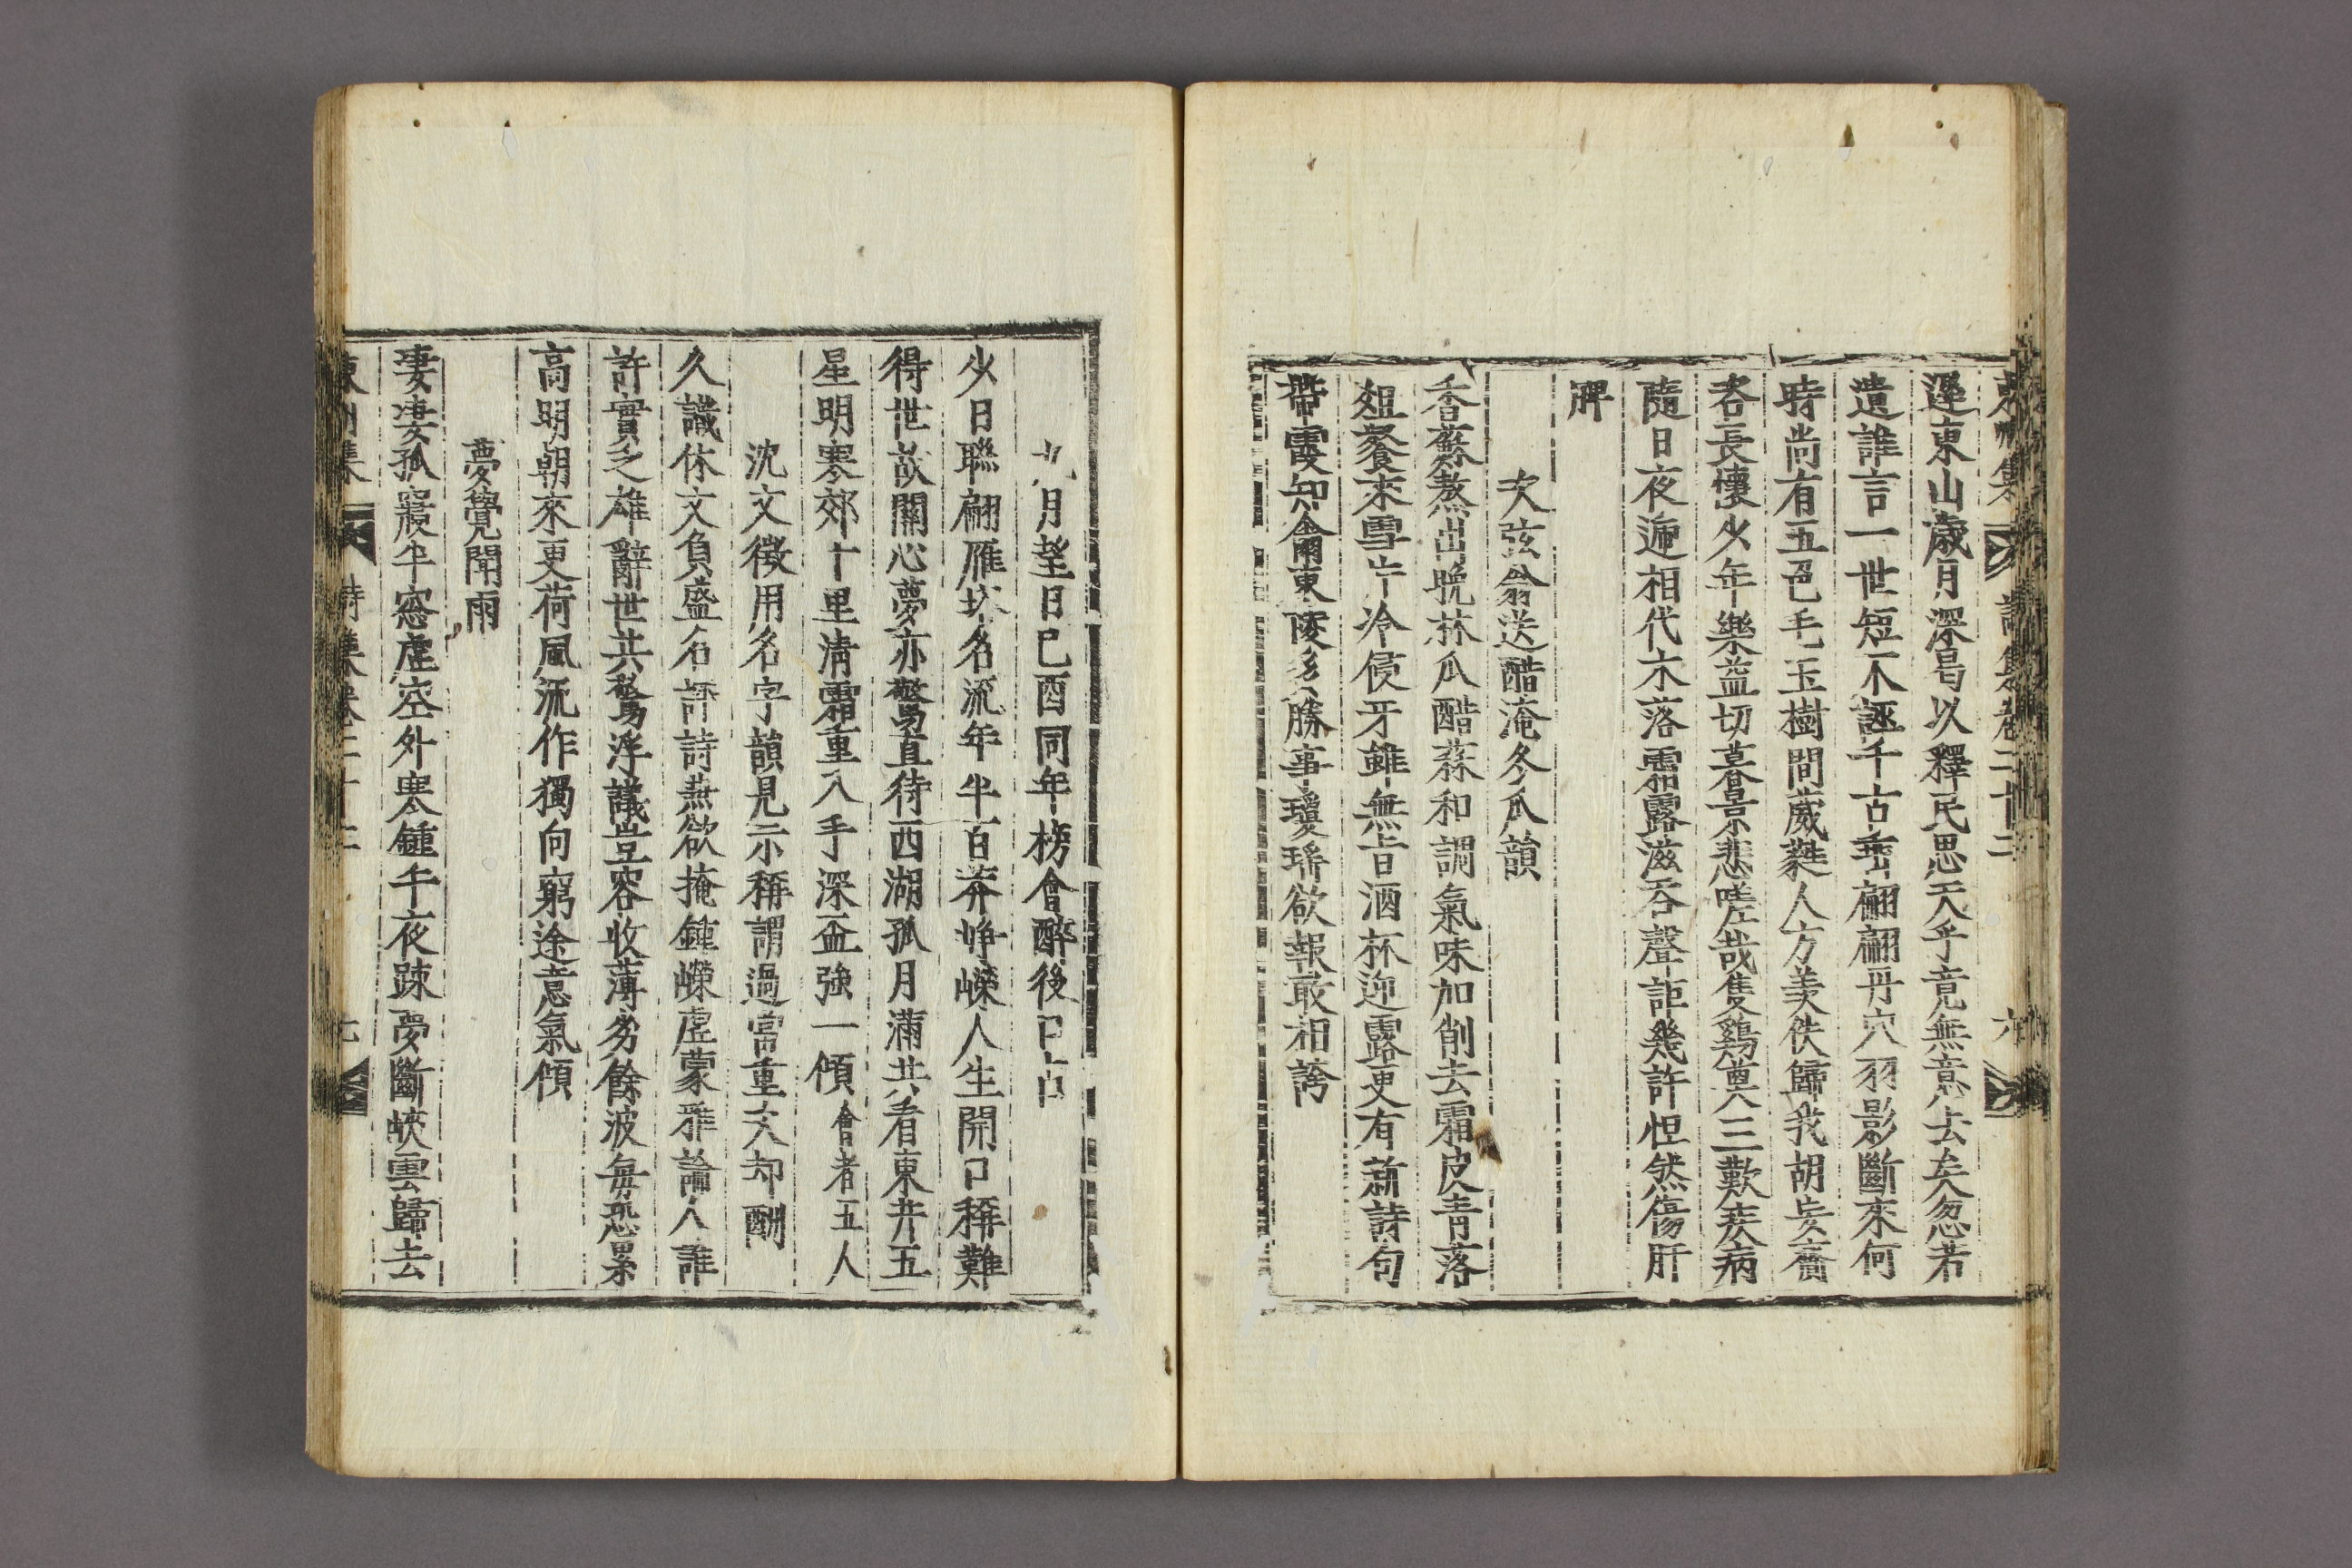 東州集 詩集卷二十二 六
遲東山歲月深曷以釋民思天乎竟無意去矣忽若
遺誰言一世短不誣千古垂翩翩丹穴羽影斷來何
時尚有五色毛玉樹間葳蕤人方羨佚歸我胡妄齎
咨長懷少年樂益切暮景悲嗟哉隻鷄奠三歎疾病
隨日夜遞相代木落霜露滋吞聲詎幾許怛然傷肝
脾
次弦翁送醋淹冬瓜韻
香蘇熬出晚林瓜醋蒜和調氣味加削去霜皮青落
爼餐來雪片冷侵牙雖無旨酒杯迎露更有新詩句
帶霞知爾東陵多勝事瓊琚欲報敢相誇
九月望日己酉同年榜會醉後口占
少日聯翩雁塔名流年半百莾崢嶸人生開口稱難
得世故關心夢亦驚直待西湖孤月滿共看東井五
星明寒郊十里淸霜重入手深盃強一傾 會者五人
沈文徵用名字韻見示稱謂過當重次却酬
久識休文負盛名評詩燕欲掩鍾嶸虛蒙雅論人誰
許實乏雄辭世共驚浮議豈容收薄劣餘波每恐累
高明朝來更荷風流作獨向窮途意氣傾
夢覺聞雨
凄凄孤寢半窓虛窓外寒鍾午夜踈夢斷峽雲歸去
東州集 詩集卷二十二 七